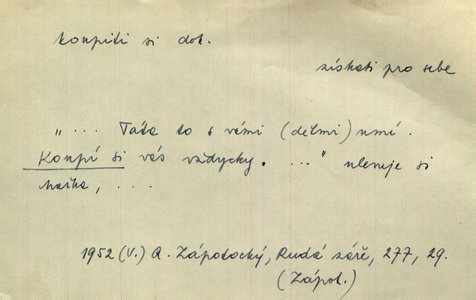 koupiti si dok.
získati pro sebe
„ .... Táta to s vámi (dětmi) umí.
Koupí si vás vždycky. ..." ulevuje si
matka, ....
1952 (V.) A. Zápotocký, Rudá zář, 277, 29.
(Zápot.)